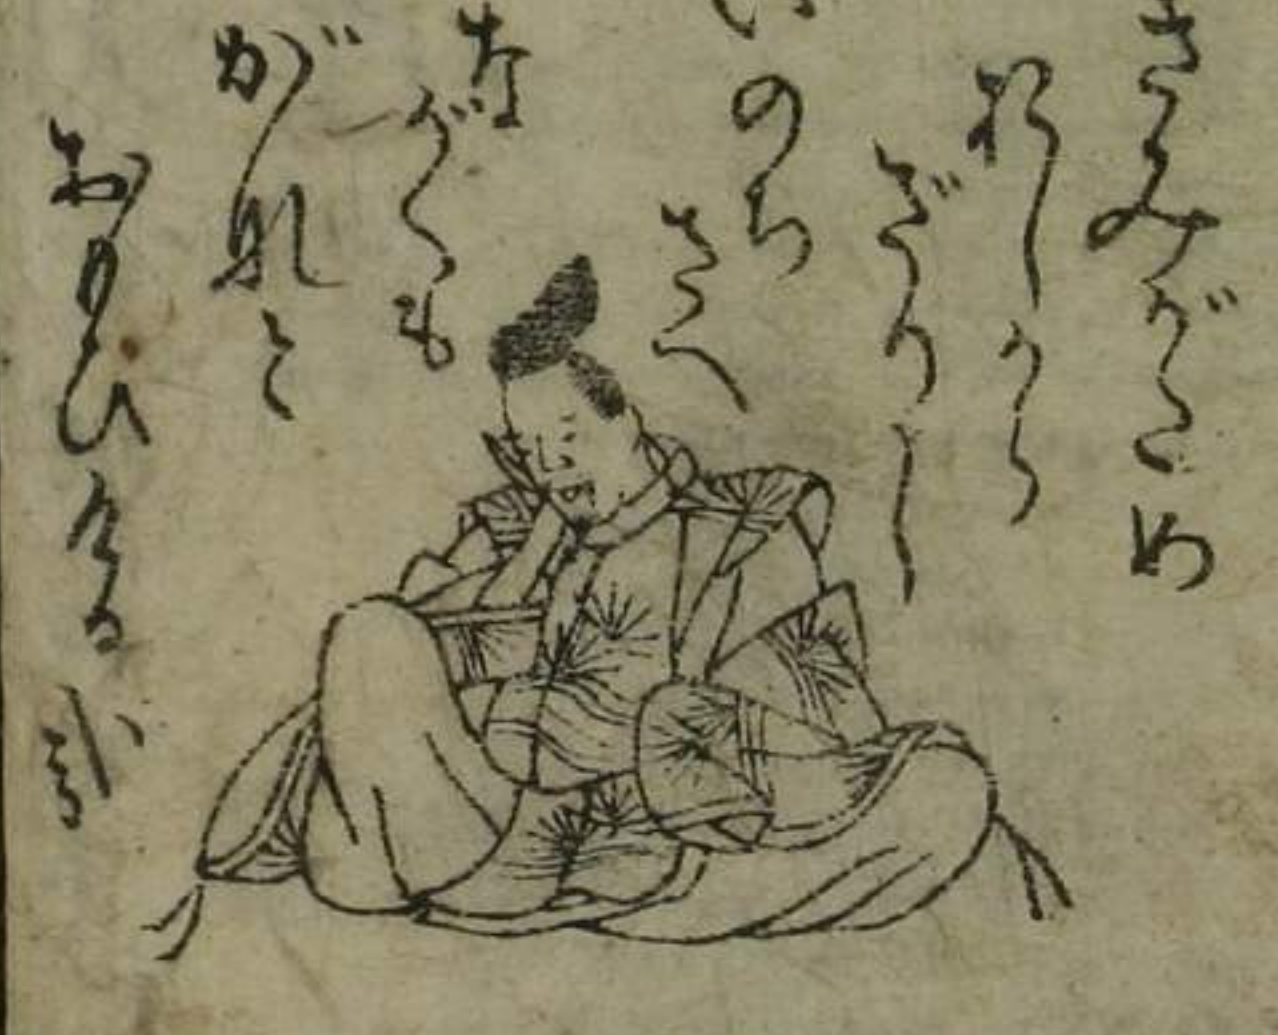 きみがため
おしから
ざりし
いのち
さへ
な
がくも
がなと
おもひける哉